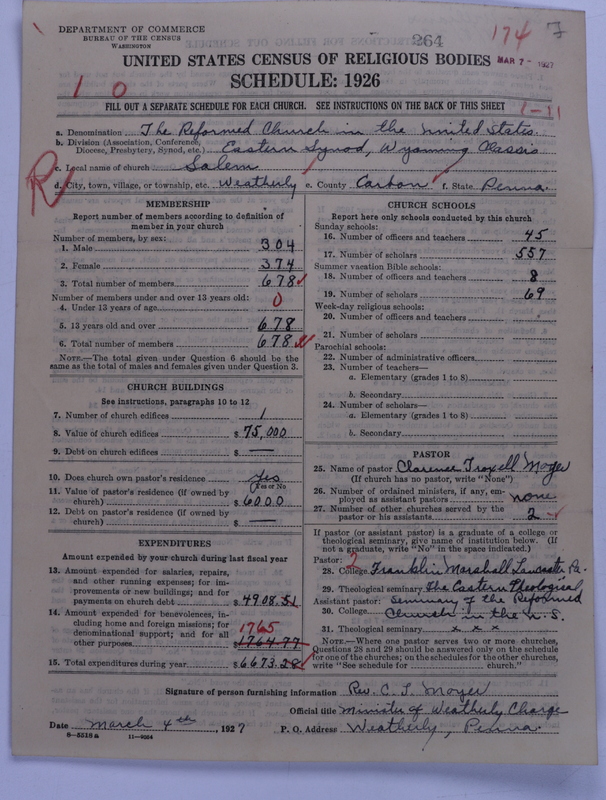 DEPARTMENT OF COMMERCE
BUREAU OF THE CENSUS
WASHINGTON
264
174
7
MAR 7 - 1927
UNITED STATES CENSUS OF RELIGIOUS BODIES
SCHEDULE: 1926
1 0
FILL OUT A SEPARATE SCHEDULE FOR EACH CHURCH. SEE INSTRUCTIONS ON THE BACK OF THIS SHEET
1-11
a. Denomination The Reformed Church in the United States.
b. Division (Association, Conference, Diocese, Presbytery, Synod, etc.) Eastern Synod, Wyoming Classis
c. Local name of church Salem
R
d. City, town, village, or township, etc. Weatherly e. County Carbon f. State Penna.
MEMBERSHIP
Report number of members according to definition of
member in your church
Number of members, by sex:
1. Male 304
2. Female 374
3. Total number of members 678
Number of members under and over 13 years old:
4. Under 13 years of age 0
5. 13 years old and over 678
6. Total number of members 678
NOTE.—The total given under Question 6 should be the
same as the total of males and females given under Question 3.
CHURCH BUILDINGS
See instructions, paragraphs 10 to 12
7. Number of church edifices 1
8. Value of church edifices $ 75,000
9. Debt on church edifices $ —
10. Does church own pastor's residence Yes
(Yes or No)
11. Value of pastor's residence (if owned by
church) $ 6000
12. Debt on pastor's residence (if owned by
church) $ —
EXPENDITURES
Amount expended by your church during last fiscal year
13. Amount expended for salaries, repairs,
and other running expenses; for im-
provements or new buildings; and for
payments on church debt $ 4908.51
14. Amount expended for benevolences, in-
cluding home and foreign missions; for
denominational support; and for all
1765
other purposes $ 1764.77
15. Total expenditures during year $ 6673.28
CHURCH SCHOOLS
Report here only schools conducted by this church
Sunday schools:
16. Number of officers and teachers 45
17. Number of scholars 557
Summer vacation Bible schools:
18. Number of officers and teachers 8
19. Number of scholars 69
Week-day religious schools:
20. Number of officers and teachers
21. Number of scholars
Parochial schools:
22. Number of administrative officers
23. Number of teachers—
a. Elementary (grades 1 to 8)
b. Secondary
24. Number of scholars—
a. Elementary (grades 1 to 8)
b. Secondary
PASTOR
25. Name of pastor Clarence Troxell Moyer
(If church has no pastor, write "None")
26. Number of ordained ministers, if any, em-
ployed as assistant pastors none
27. Number of other churches served by the
pastor or his assistants 2
If pastor (or assistant pastor) is a graduate of a college or
theological seminary, give name of institution below. (If
not a graduate, write "No" in the space indicated.)
Pastor: 2
28. College Franklin Marshall, Lancaster Pa.
29. Theological seminary The Eastern Theological
Assistant pastor: Seminary of the Reformed
30. College Church in the U.S.
31. Theological seminary x x x
NOTE.—Where one pastor serves two or more churches,
Questions 28 and 29 should be answered only on the schedule
for one of the churches; on the schedules for the other churches,
write "See schedule for church."
Signature of person furnishing information Rev. C. T. Moyer
Official title Minister of Weatherly Charge
Date March 4th, 1927 P. O. Address Weatherly, Penna.
8-5518a 11-9964